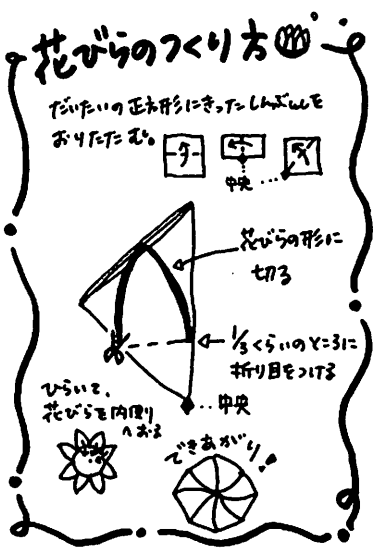 花びらのつくり方
だいたいの正方形にきったしんぶんしを
おりたたむ。
中央
花びらの形に
切る
1/3くらいのところに
折り目をつける
中央
ひらいて、
花びらを内側
へおる
できあがり!